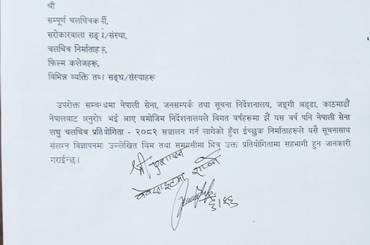 श्री
सम्पूर्ण चलचित्रकर्मी,
सरोकारवाला सङ्घ/संस्था,
चलचित्र निर्माताहरू,
फिल्म कलेजहरू,
विभिन्न व्यक्ति तथा सङ्घ/संस्थाहरू
उपरोक्त सम्बन्धमा नेपाली सेना, जनसम्पर्क तथा सूचना निर्देशनालय, जङ्गी अड्डा, काठमाडौं
नेपालबाट अनुरोध भई आए बमोजिम निर्देशनालयले विगत वर्षहरूमा झैं यस वर्ष पनि नेपाली सेना
लघु चलचित्र प्रतियोगिता - २०८२ सञ्चालन गर्न लागेको हुँदा ईच्छुक निर्माताहरूले यसै सूचनासाथ
संलग्न विज्ञापनमा उल्लेखित थिम तथा समयसीमा भित्र उक्त प्रतियोगितामा सहभागी हुन जानकारी
गराईन्छ।
श्री
वेबसाइटमा